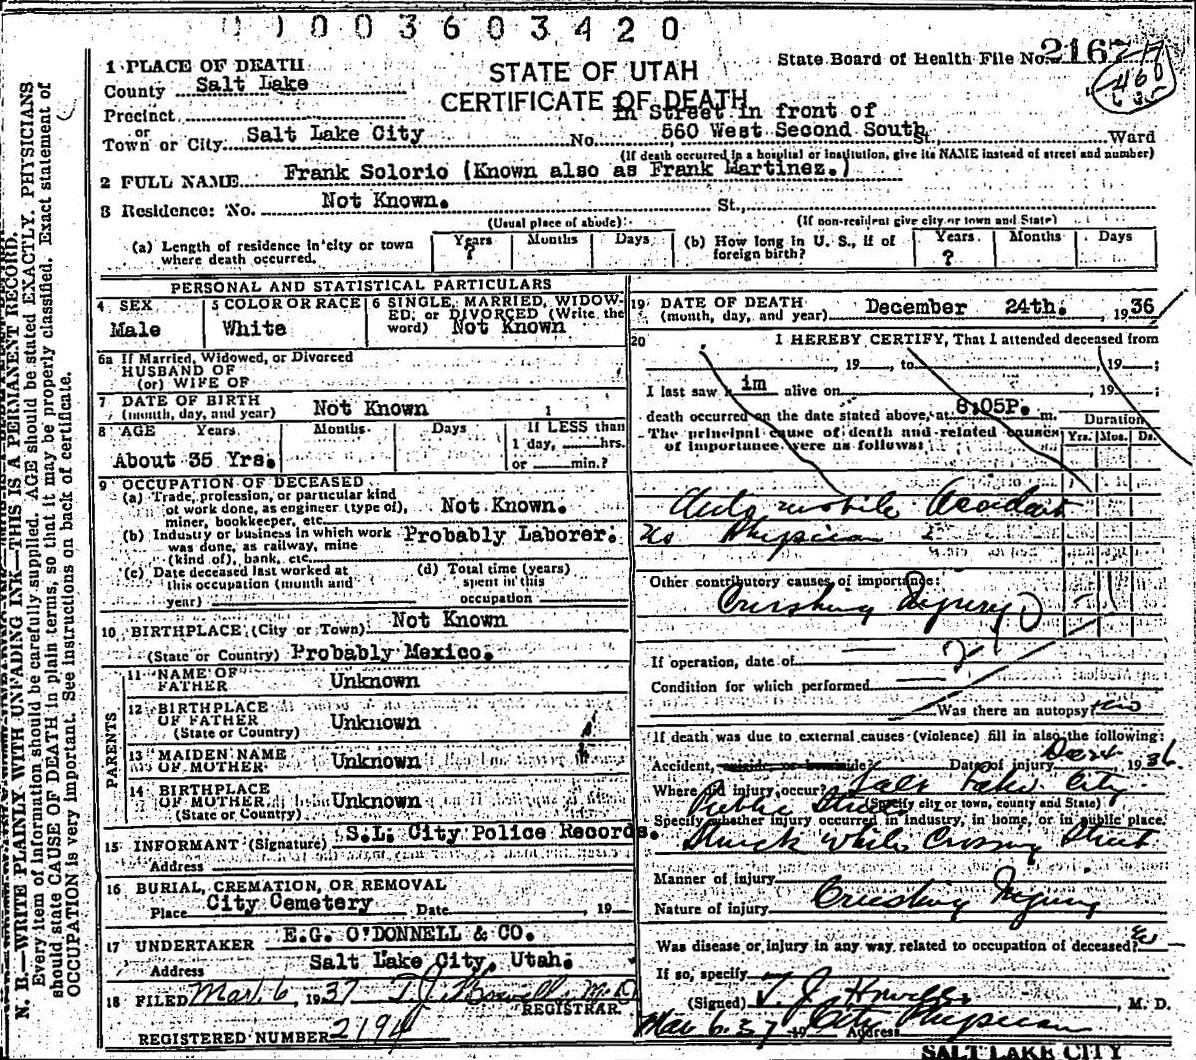 1003603420
1 PLACE OF DEATH
STATE OF UTAH
State Board of Health File No. 2167
County Salt Lake
CERTIFICATE OF DEATH
460
Precinct
In Street in front of
or
Town or City Salt Lake City No. 560 West Second South St., Ward
(If death occurred in a hospital or institution, give its NAME instead of street and number)
2 FULL NAME Frank Solorio (Known also as Frank Martinez.)
3 Residence: No. Not Known. St.,
(Usual place of abode) (If non-resident give city or town and State)
(a) Length of residence in city or town where death occurred. Years ? Months Days (b) How long in U. S., if of foreign birth? Years ? Months Days
PERSONAL AND STATISTICAL PARTICULARS
4 SEX Male
5 COLOR OR RACE White
6 SINGLE, MARRIED, WIDOWED, or DIVORCED (Write the word) Not Known
6a If Married, Widowed, or Divorced
HUSBAND OF
(or) WIFE OF
7 DATE OF BIRTH
(month, day, and year) Not Known
8 AGE Years Months Days If LESS than
1 day, hrs.
About 35 Yrs. or min.?
9 OCCUPATION OF DECEASED
(a) Trade, profession, or particular kind
of work done, as engineer (type of),
miner, bookkeeper, etc. Not Known.
(b) Industry or business in which work
was done, as railway, mine
(kind of), bank, etc. Probably Laborer.
(c) Date deceased last worked at
this occupation (month and
year)
(d) Total time (years)
spent in this
occupation
10 BIRTHPLACE (City or Town) Not Known
(State or Country) Probably Mexico.
PARENTS
11 NAME OF
FATHER Unknown
12 BIRTHPLACE
OF FATHER Unknown
(State or Country)
13 MAIDEN NAME
OF MOTHER Unknown
14 BIRTHPLACE
OF MOTHER Unknown
(State or Country)
15 INFORMANT (Signature) S.L. City Police Records.
Address
16 BURIAL, CREMATION, OR REMOVAL
Place City Cemetery Date , 19
17 UNDERTAKER E.G. O'DONNELL & CO.
Address Salt Lake City, Utah.
18 FILED Mar. 6, 1937 T.J. Howells M.D.
REGISTRAR.
REGISTERED NUMBER 2194
19 DATE OF DEATH
(month, day, and year) December 24th. , 1936
20 I HEREBY CERTIFY, That I attended deceased from
, 19 , to , 19 ;
I last saw h im alive on , 19 ;
death occurred on the date stated above, at 8:05P. m.
The principal cause of death and related causes
of importance were as follows:
Duration
Yrs. Mos. Ds.
Automobile Accident
No Physician
Other contributory causes of importance:
Crushing Injury
If operation, date of
Condition for which performed
Was there an autopsy? No
If death was due to external causes (violence) fill in also the following:
Accident, suicide or homicide? Date of injury Dec 24 1936.
Where did injury occur? Salt Lake City
(Specify city or town, county and State)
Public Street
Specify whether injury occurred in industry, in home, or in public place.
Struck while Crossing Street
Manner of injury
Nature of injury Crushing Injury
Was disease or injury in any way related to occupation of deceased?
If so, specify
(Signed) T. J. Howells M. D.
Mar 6. 37 19 Address City Physician
SALT LAKE CITY
N. B.—WRITE PLAINLY, WITH UNFADING INK—THIS IS A PERMANENT RECORD.
Every item of information should be carefully supplied. AGE should be stated EXACTLY. PHYSICIANS
should state CAUSE OF DEATH in plain terms, so that it may be properly classified. Exact statement of
OCCUPATION is very important. See instructions on back of certificate.